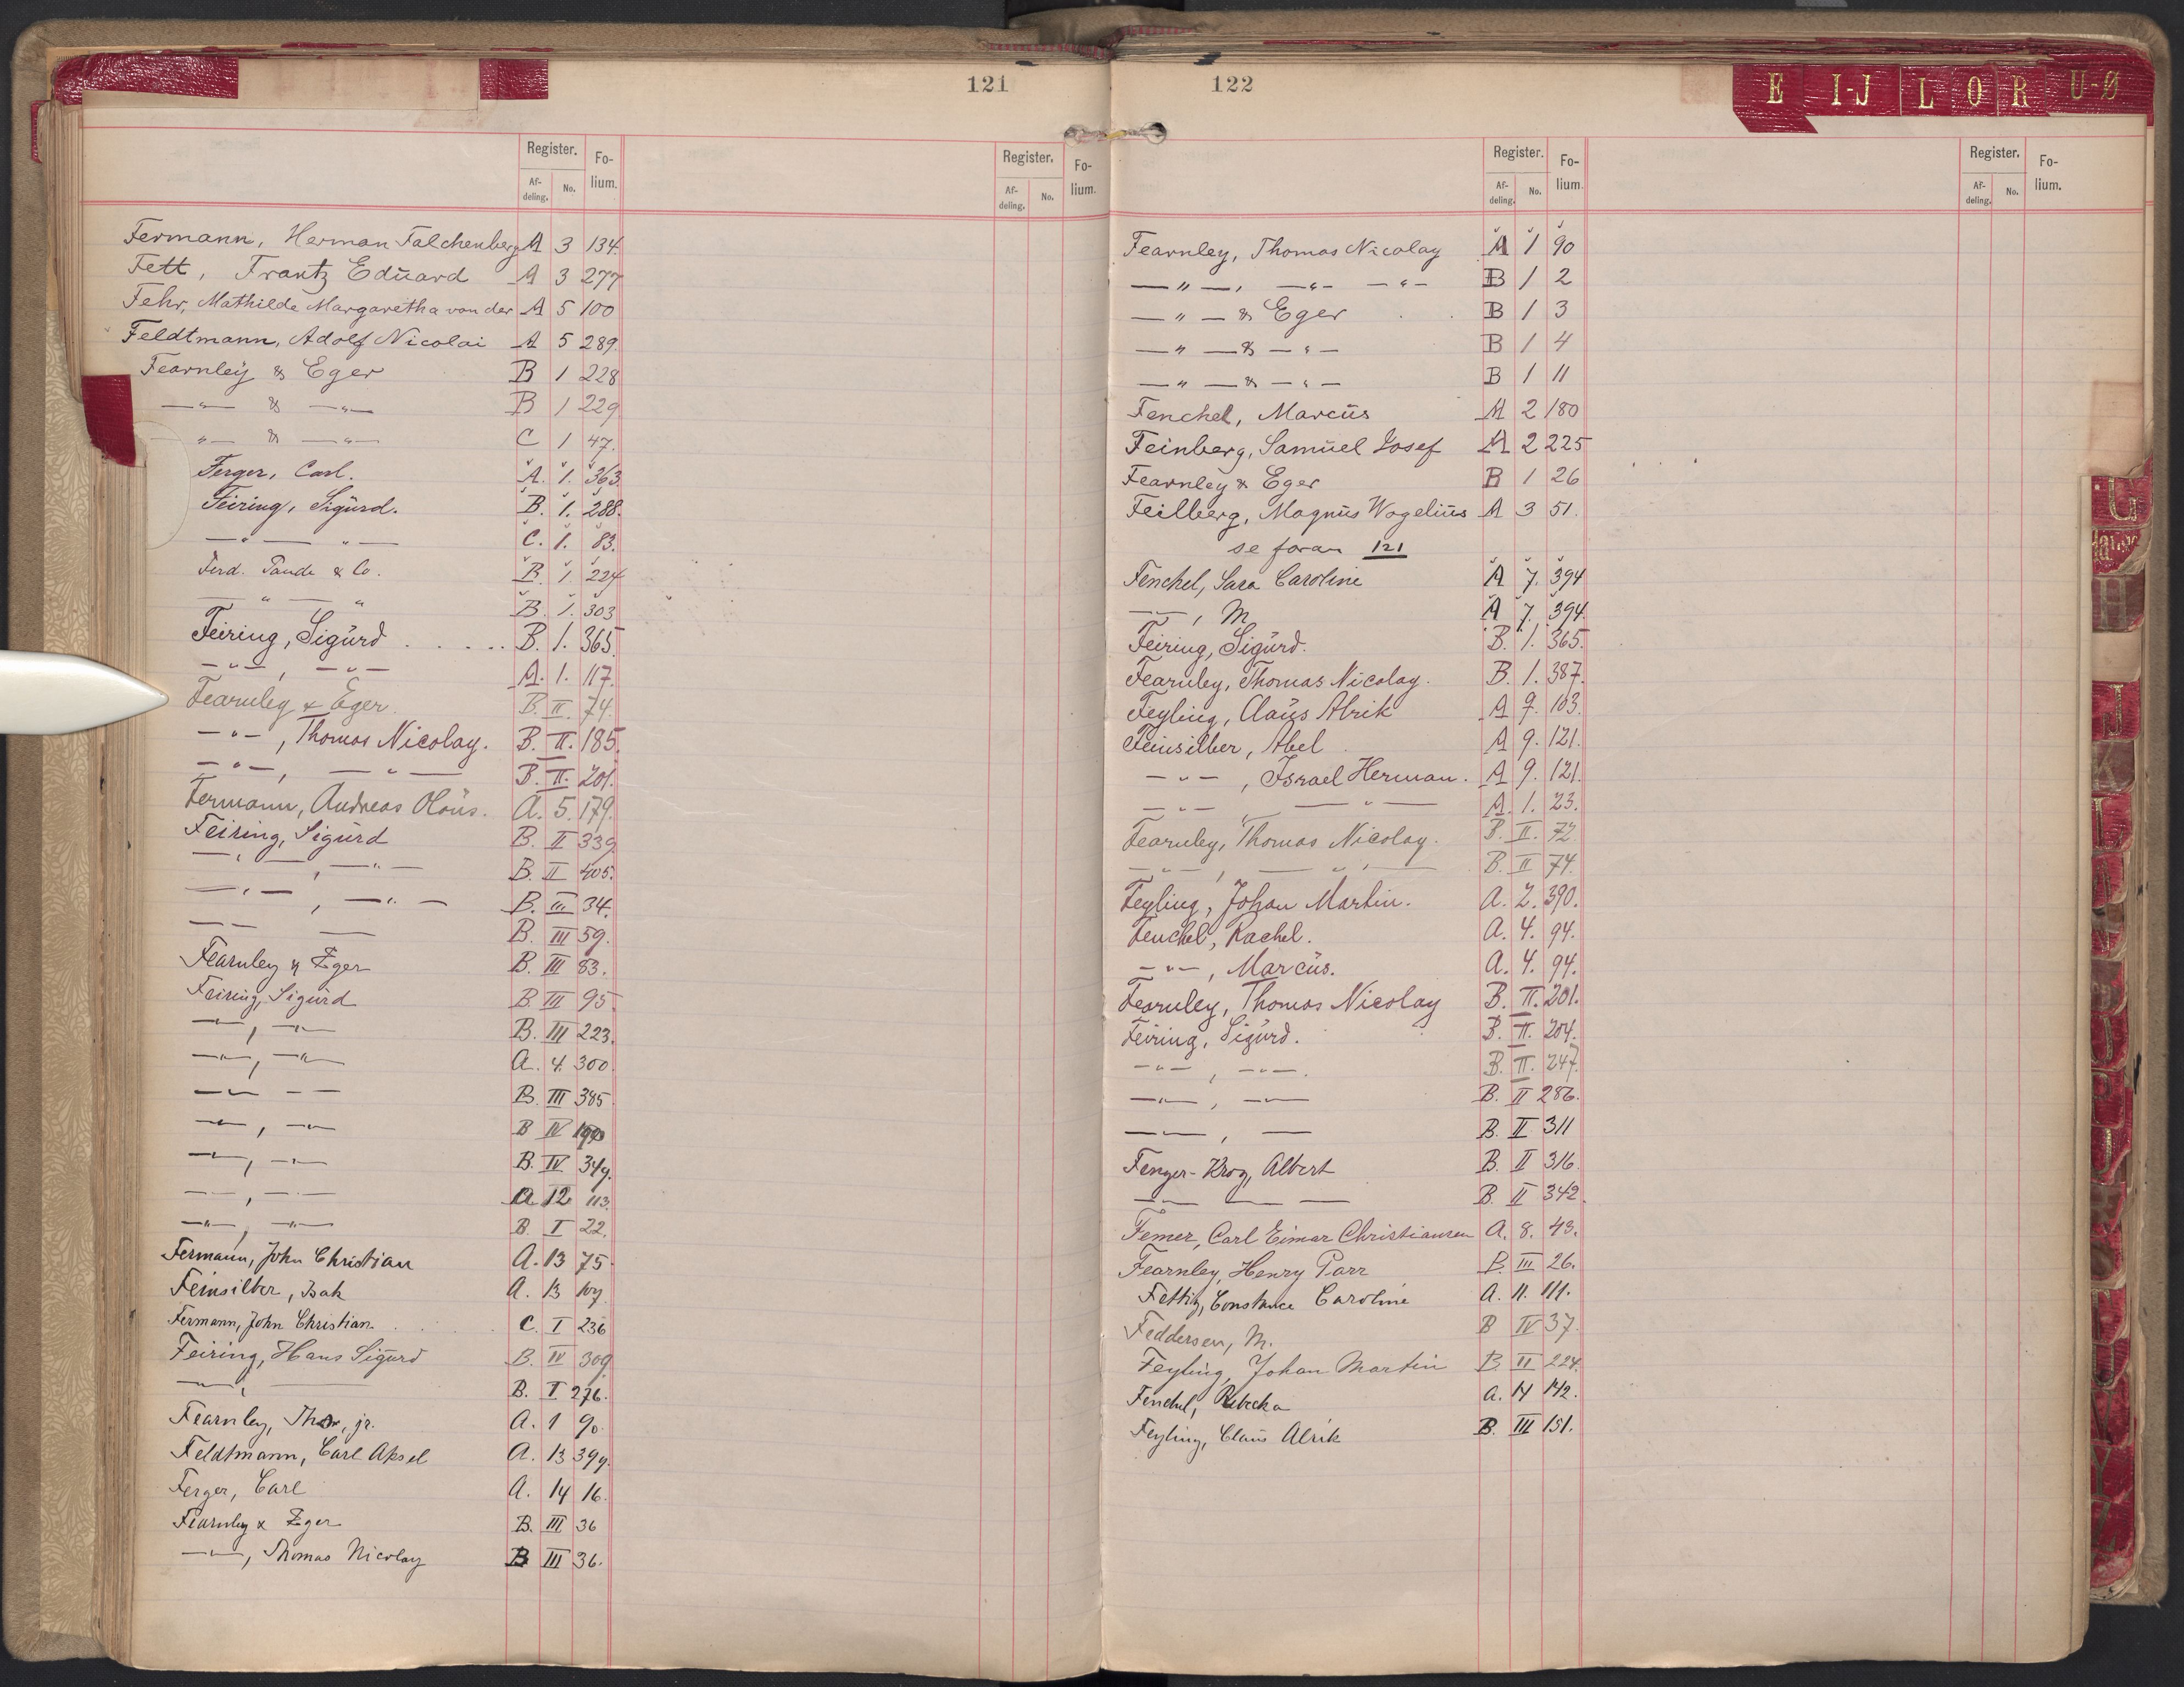 121
Register. Fo-
lium.
Af-
deling. No.
Register. Fo-
lium.
Af-
deling. No.
Fermann, Herman Falchenberg A 3 134.
Fett, Frantz Eduard A 3 277
Fehr, Mathilde Margaretha von der A 5 100
Feldtmann, Adolf Nicolai A 5 289.
Fearnley & Eger B 1 228
—"— & —"— B 1 229
—"— & —"— C 1 47.
Ferger, Carl. A. 1. 363.
Feiring, Sigurd. B. 1. 288.
—"— " — C. 1. 83.
Ferd. & Co. B. 1 224
— " — " B. 1. 303
Feiring, Sigurd . . . . . B. 1. 365.
—"—, —"— A. 1. 117.
Fearnley & Eger. B. II. 74.
—"—, Thomas Nicolay. B. II. 185.
—"—, — " — B. II. 201.
Fermann, Andreas Olaus. A. 5. 179.
Feiring, Sigurd B. II 339
—"—, —"— B. II 405.
—"—, —"— B. III 34.
— — — B. III 59.
Fearnley & Eger B. III 83.
Feiring, Sigurd B III 95
—"—, —"— B. III 223.
—"—, —"— A. 4. 300.
—"— — — B. III 385
—"—, —"— B IV
—"—, —"— B. IV 349.
—"—, —"— A. 12 113.
—"—, —"— B. I 22.
Fermann, John Christian A. 13 75.
Feinsilber, Isak A. 13 107.
Fermann, John Christian. C. I 236
Feiring, Hans Sigurd B. IV 309
—"—, — B. I 276.
Fearnley, Thos, jr. A. 1 90.
Feldtmann, Carl Aksel A. 13 399.
Ferger, Carl A. 14 16.
Fearnley & Eger B. III 36
—"—, Thomas Nicolay B III 36.
122
E I-J L O R U-Ø
Register. Fo-
lium.
Af-
deling. No.
Register. Fo-
lium.
Af-
deling. No.
Fearnley, Thomas Nicolay A 1 90
—"—, —"— —"— B 1 2
—"— & Eger B 1 3
—"— & —"— B 1 4
—"— & —"— B 1 11
Fenchel, Marcus A 2 180
Feinberg, Samuel Josef A 2 225
Fearnley & Eger B 1 26
Feilberg, Magnus Wogelius A 3 51.
se foran 121
Fenchel, Sara Caroline A 7. 394
—"—, M. A 7. 394.
Feiring, Sigurd. B. 1. 365.
Fearnley, Thomas Nicolay. B. 1. 387.
Feyling, Claus Alrik A 9. 103.
Feinsilber, Abel A 9. 121.
—"—, Israel Herman. A 9. 121.
—"— — " — A. 1. 23.
Fearnley, Thomas Nicolay. B. II. 72.
—"—, — " — B. II 74.
Feyling, Johan Martin. A. 2. 390.
Fenchel, Rachel. A. 4. 94.
—"—, Marcus. A. 4. 94.
Fearnley, Thomas Nicolay B. II. 201.
Feiring, Sigurd. B. II. 204.
—"—, —"—. B. II. 247.
—"—, —"— B. II 286.
—"—, — B. II 311
Fenger-Krog, Albert B. II 316
—"— — — B. II 342.
Femer, Carl Eimar Christiansen A. 8. 43.
Fearnley, Henry Parr B. III 26.
Fettig, Constance Caroline A. 11. 111.
Feddersen, M. B IV 37.
Feyling, Johan Martin B. II 224.
Fenchel, Rebecka A. 14 142.
Feyling, Claus Alrik B. III 151.
G
H
J
K